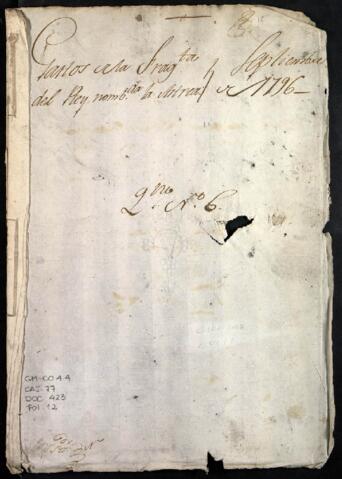 Gastos de la Frag.ta
del Rey nomb.da la Astrea
Septiembre
de 1796
Q.no N.o 6.
GM-CO 4.4
CAJ. 77
DOC. 423
FOL. 12